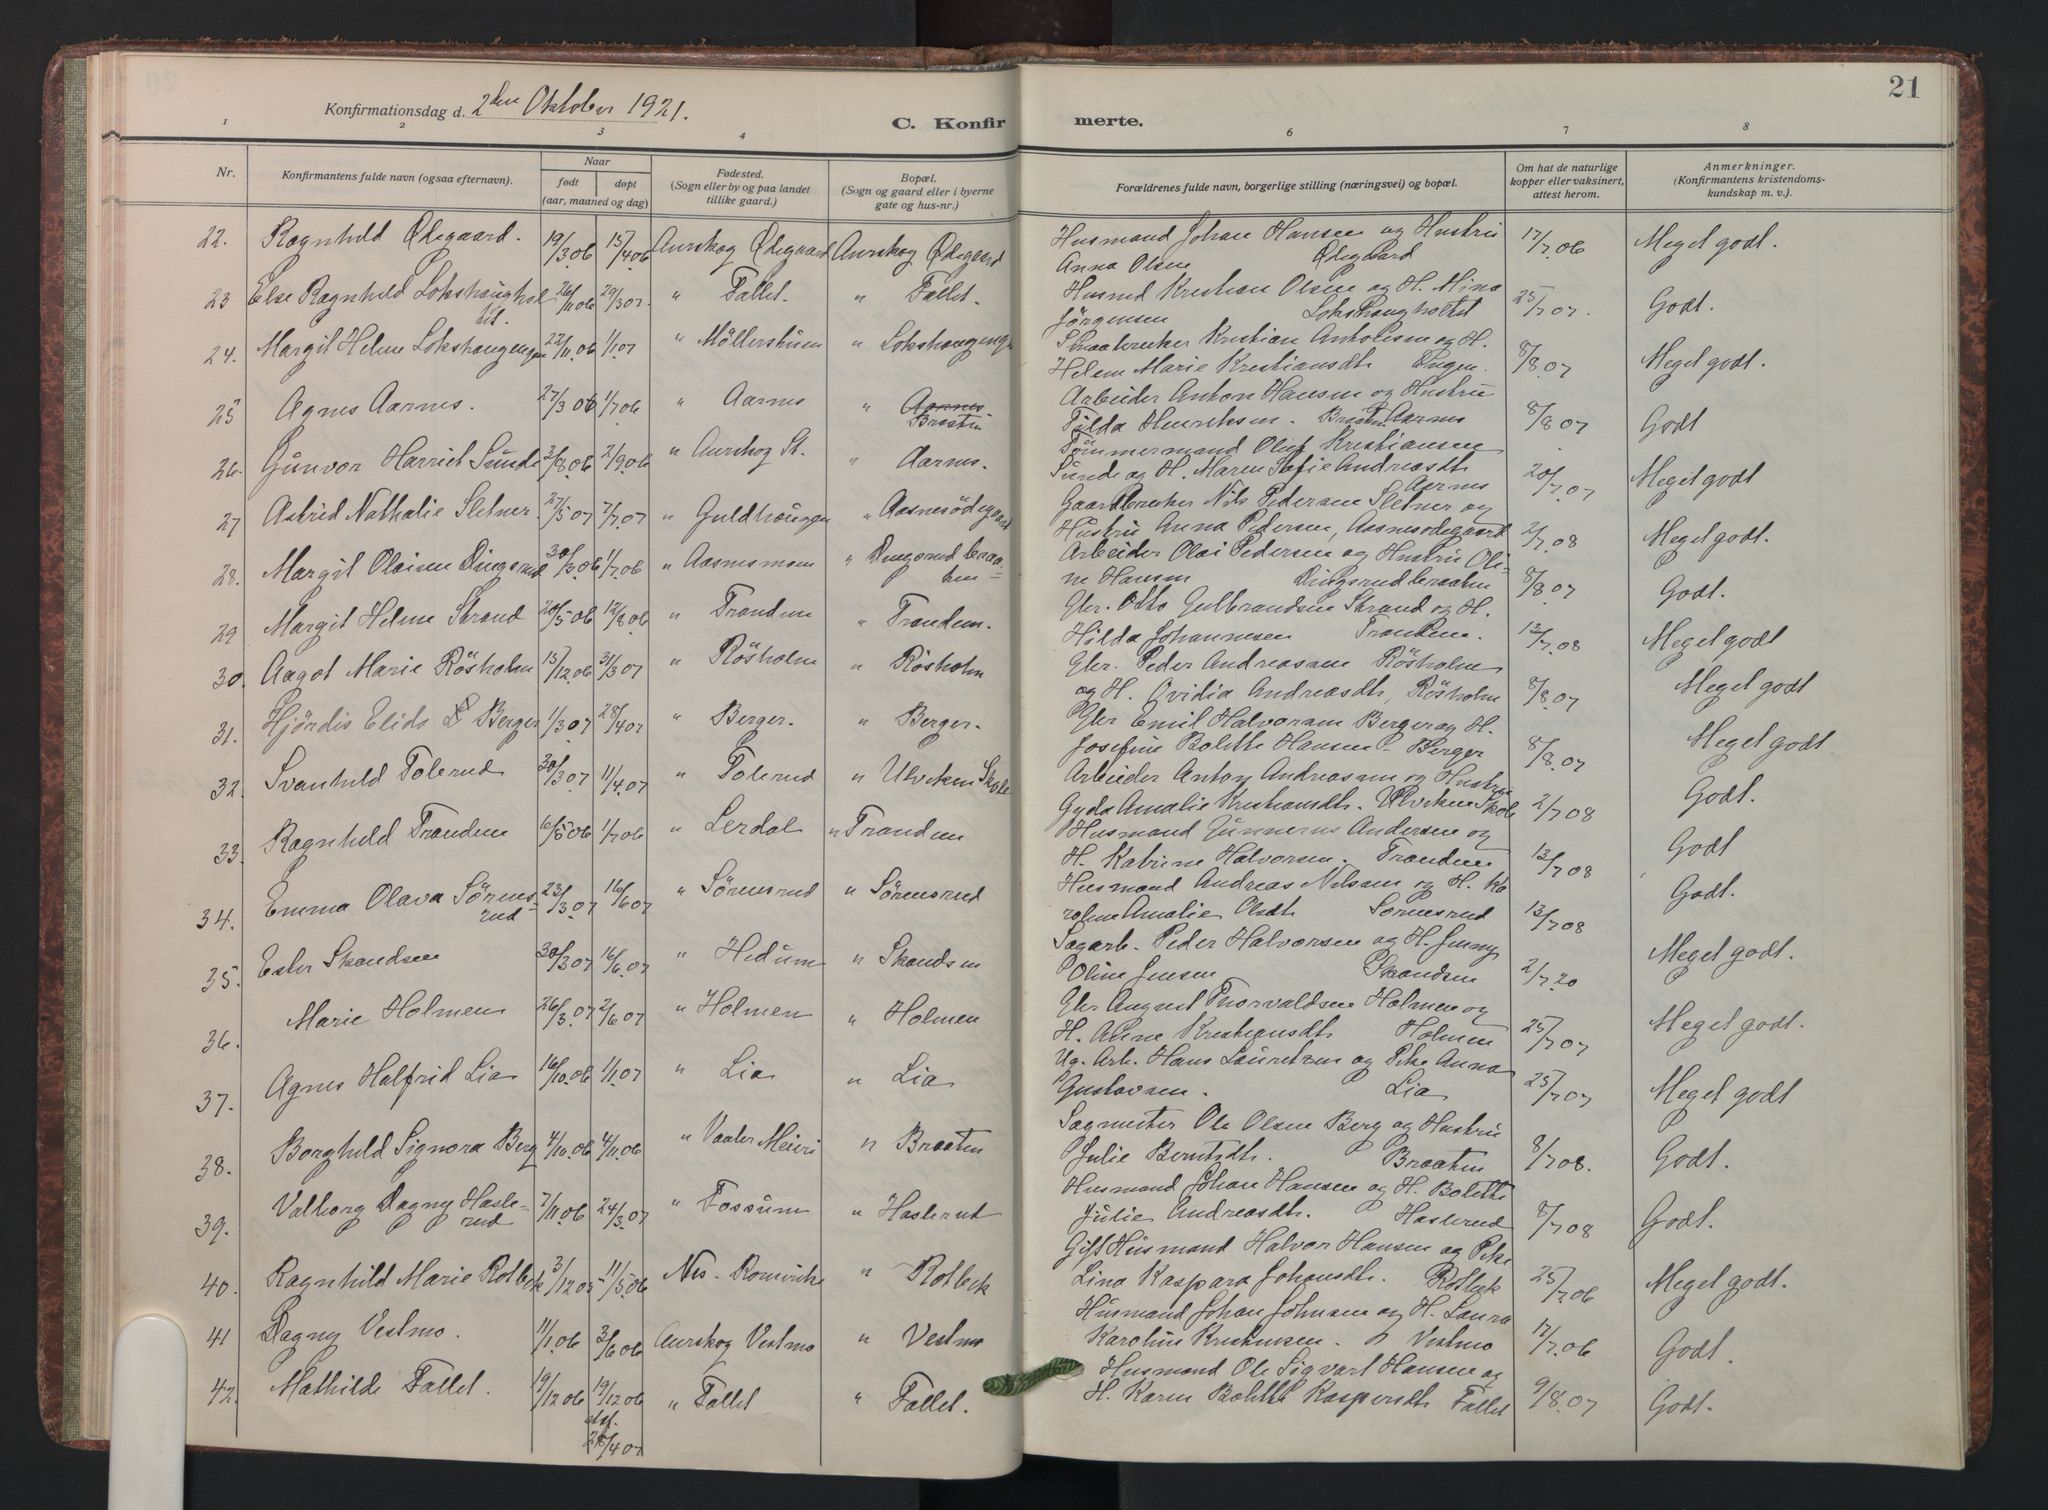 21
Konfirmationsdag d. 2den Oktober 1921.
C. Konfirmerte.
1 2 3 4 6 7 8
Nr. Konfirmantens fulde navn (ogsaa efternavn). Naar født døpt (aar, maaned og dag) Fødested. (Sogn eller by og paa landet tillike gaard.) Bopæl. (Sogn og gaard eller i byerne gate og hus-nr.) Forældrenes fulde navn, borgerlige stilling (næringsvei) og bopæl. Om hat de naturlige kopper eller vaksinert, attest herom. Anmerkninger. (Konfirmantens kristendomskundskap m. v.).
22. Ragnhild Ødegaard. 19/3.06 15/4.06 Aurskog Ødegaard Aurskog Ødegaard Husmand Johan Hansen og Hustru 17/7.06 Meget godt.
Anna Olsen Ødegaard
23 Else Ragnhild Lokshaughol 26/11.06 29/3.07. " Fallet. " Fallet. Husmd Kristian Olsen og H. Mina 25/7.07. Godt.
tet. Jørgensen Lokshaugholtet
24. Margit Helene Lokshaugengen 22/11.06 1/1.07 " Möllershusen " Lokshaugengen Kristian Antonisen og H. 8/8.07 Meget godt.
Helene Marie Kristiansdt. Engen.
25 Agnes Aarnes. 27/3 06 1/7.06 " Aarnes " Aarnes. Arbeider Anton Hansen og Hustru 8/8.07 Godt
Braaten Tilda Henriksen. Aarnes
26. Gunvor Harriet Sunde 3/8.06 2/9.06 " Aurskog St. " Aarnes. Tømmermand Oluf Kristiansen 20/7.07 Meget godt
Sunde og H. Maren Sofie Andreasdt. Aarnes
27 Astrid Nathalie Sletner 27/5 07 7/7.07 " Guldhaugen " Aasnesödegaard Gaardbruker Nils Pedersen Sletner og 2/7.08 Meget godt.
Hustru Anna Pedersen, Aasnesødegaard
28. Margit Olaisen Dingsrud 30/3.06 1/7.06 " Aasnesmoen " Dingsrud braa- Arbeider Olai Pedersen og Hustru Oli- 8/8.07 Godt.
ten= ne Hansen Dingsrudbraaten
29 Margit Helene Strand 20/5 06 12/8 06 " Trandem " Trandem. Gbr. Otto Gulbrandsen Strand og H. 12/7.08 Meget godt
Hilda Johannesen Trandem.
30. Aagot Marie Rösholm 15/12.06 31/3 07 " Rösholm " Rösholm Gbr. Peder Andreassen Rösholm 8/8.07 Meget godt
og H. Ovidia Andreasdt, Rösholm
31. Hjördis Elida Berger 1/3.07 28/4 07 " Berger. " Berger. Gbr Emil Halvorsen Berger og H. 8/8.07 Meget godt
Josefine Bolette Hansen Berger
32. Svanhild Tolerud 30/3.07 11/4.07 " Tolerud " Ulviken Skole Arbeider Anton Andreassen og Hustru 2/7 08 Godt.
Gyda Amalie Kristiansdt. Ulviken Skole
33. Ragnhild Trandem 6/5 06 1/7 06 " Lerdal " Trandem Husmand Gunnerus Andersen og 13/7 08 Godt
H. Katrine Halvorsen. Trandem
34. Emma Olava Sörens- 23/3.07 16/6 07 " Sörensrud " Sörensrud Husmand Andreas Nilsen og H. Ka 13/7 08 Godt.
rud roline Amalie Olsdt. Sørensrud
35. Ester Skandsen 30/3 07 16/6.07 " Hedum " Skandsen Sagarb. Peder Halvorsen og H. Jenny 2/7.20 Meget godt.
Oline Jensen Skandsen
36. Marie Holmen 26/3.07 2/6 07 " Holmen " Holmen Gbr August Thorvaldsen Holmen og 25/7 07 Meget godt.
H. Anne Kristiansdt. Holmen
37. Agnes Halfrid Lia 16/10.06 1/1.07 " Lia " Lia Ug. Arb. Hans Lauritzen og Pike Anna 25/7 07 Meget godt
Gustavsen. Lia
38. Borghild Signora Berg 4/10.06 4/11.06 " Vaaler Meieri " Braaten Sagmester Ole Olsen Berg og Hustru 8/7 08. Godt.
Julie Berntsdt. Braaten
39. Valborg Dagny Hasle- 7/11.06 24/3.07 " Fossum " Haslerud Husmand Johan Hansen og H. Bolette 8/7 08 Godt.
rud Julie Andreasdt. Haslerud
40. Ragnhild Marie Rotbek 3/12 05 11/5.06 Nes. Romerike " Rotbek Gift Husmand Halvor Hansen og Pike 25/7.06 Meget godt.
Lina Kaspara Johansdt. Rotbek
41 Dagny Vestmo. 11/1.06 3/6 06 Aurskog Vestmo " Vestmo Husmand Johan Johnsen og H. Laura 17/7.06 Godt.
Karoline Kristensen. Vestmo
42. Mathilde Fallet. 19/12 06 19/12 06 " Fallet " Fallet. Husmand Ole Sigvart Hansen og 9/8.07 Godt.
28/4 07 H. Karen Bolette Kaspersdt Fallet